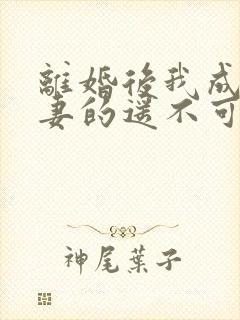 離婚後我成
妻的遙不可
神尾葉子